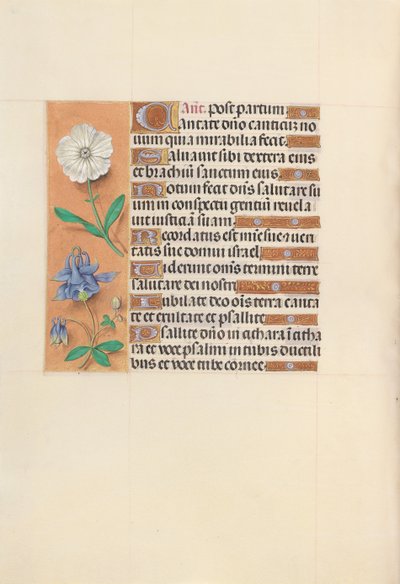 Ant. Post partum
Cantate dño canticũ no
uum quia mirabilia fecit.
Saluauit sibi dextera eius
et brachiũ sanctum eius.
Notum fecit dñs salutare su
um in conspectu gentiũ reuela
uit iusticiã suam.
Recordatus est mise sue⁊ ueri
tatis sue domui israel
Uiderunt oms̃ termini terre
salutare dei nostri
Iubilate deo oĩs terra canta
te et exultate et psallite
Psallite dño in cithara ĩ citha
ra et uoce psalmi in tubis ductili
bus et uoce tube cornee